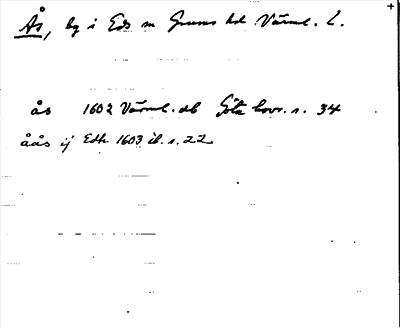 Ås, by i Eds sn Grums hd Värml. L.
ås 1602 Värml. db Göta hovr. s. 34
åås ij Edh 1603 ib. s. 22